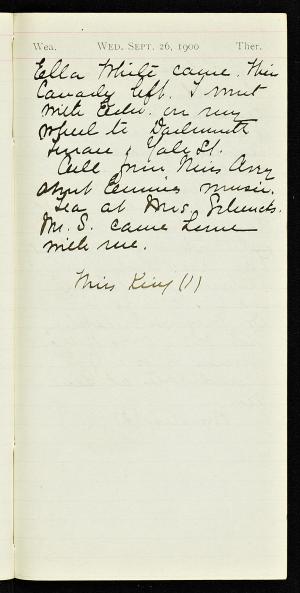 Wea. WED. SEPT. 26, 1900 Ther.
Ella White came. Miss
Canady left. I went
with Edw. on my
wheel to Dartmouth
Terrace & Yale St.
Call from Miss Avery
about Connie's music.
Tea at Mrs. Schenck's.
Mr. S. came home
with me.
Miss King (1)